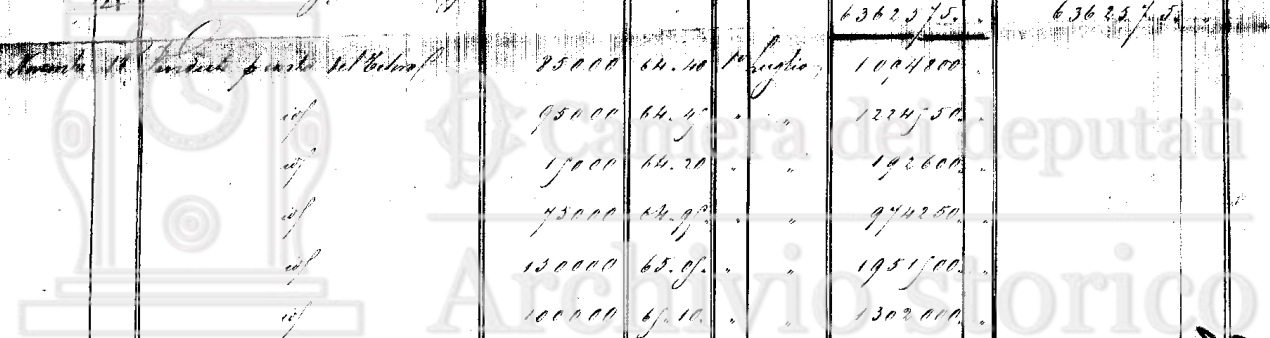 6362575. „ 6362575. „
85000 64.40 1° Luglio 1094800
id 95000 64.45 „ „ 1224550. „
id 15000 64.20 „ „ 192600. „
id 75000 64.95. „ „ 974250. „
id 150000 65.05. „ „ 1951500. „
id 100000 65.10. „ „ 1302000. „
Camera dei deputati
Archivio storico